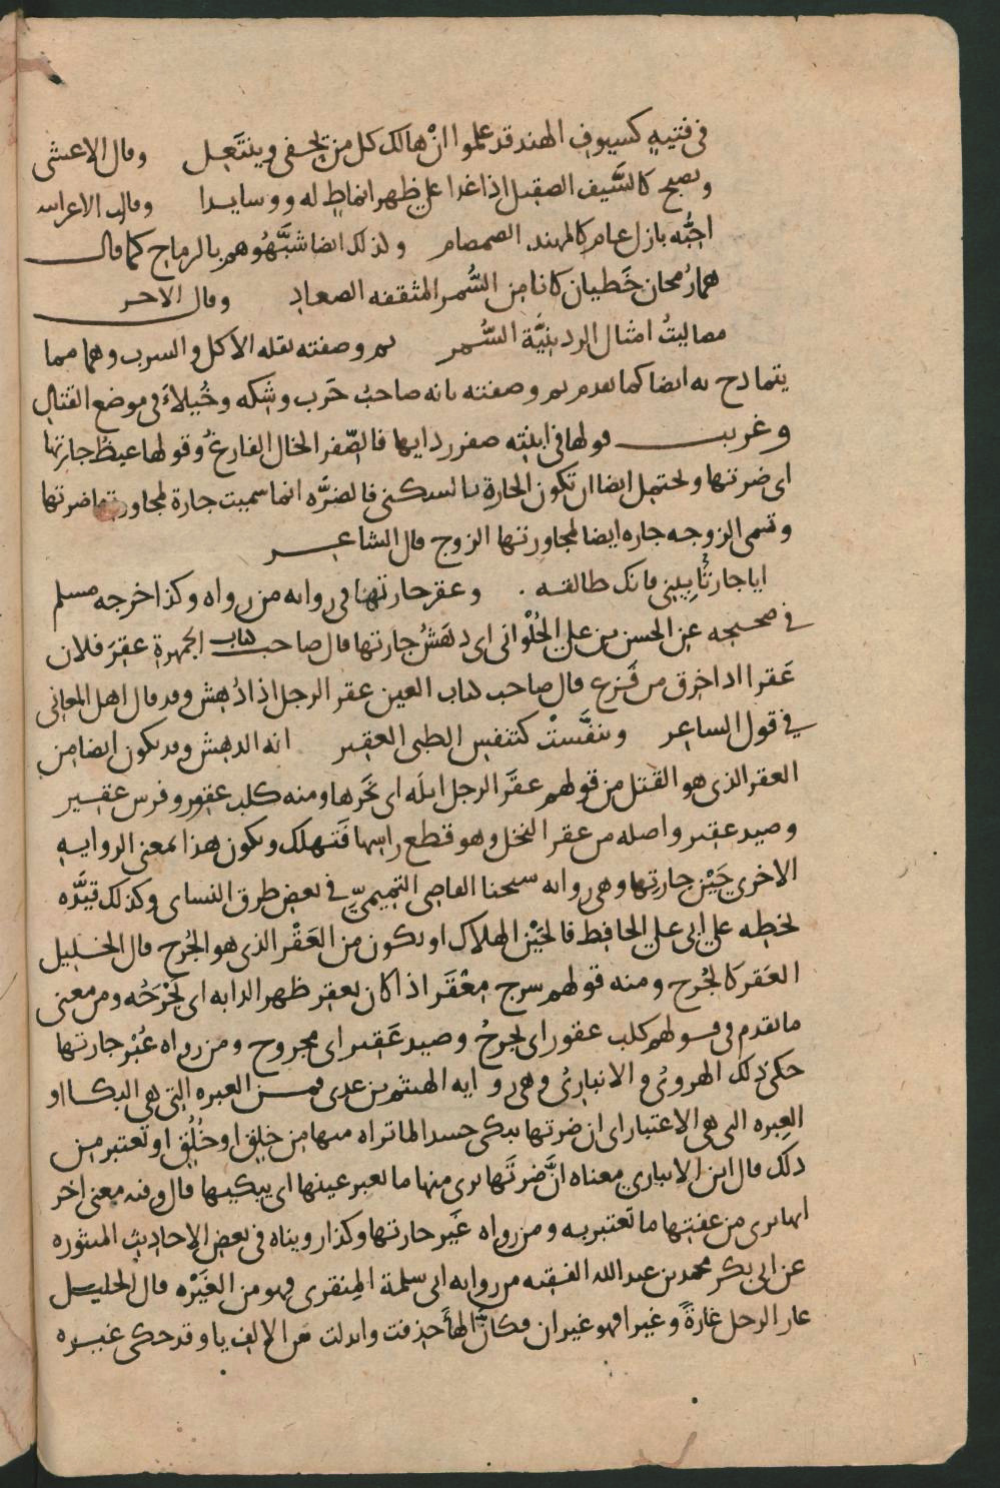 في فتية كسيوف الهند قد علموا ان هالك كل من يحفى وينتعل وقال الاعشى
وتصبح كالسيف الصقيل اذا غدا على ظهر انماط له ووسايدا وقالت الاعرابيه
احبه بازل عام كالمهند الصمصام ولذلك ايضا شبهوهم بالرماح كما قال
هما رمحان خطيان كانا من السمر المثقفه الصعاد وقال الاخر
مصاليت امثال الردينية السمر ثم وصفته بقله الاكل والشرب وهما مما
يتمادح به ايضا كما تقدم ثم وصفته بانه صاحب حرب وشكه وخيلاء في موضع القتال
وغريب قولها في ابنته صفر ردايها فالصفر الخال الفارغ وقولها غيظ جارتها
اي ضرتها ويحتمل ايضا ان تكون الجارة بالسكنى فالضره انما سميت جارة لمجاورتها ضرتها
وتسمى الزوجه جاره ايضا لمجاورتها الزوج قال الشاعر
ايا جارتا بيني فانك طالقه . وعقر جارتها في روايه من رواه وكذا اخرجه مسلم
في صحيحه عن الحسن بن علي الحلواني اي دهش جارتها قال صاحب كتاب الجمهرة عقر فلان
عقرا اذا خرق من فزع قال صاحب كتاب العين عقر الرجل اذا دهش وقد قال اهل المعاني
في قول الشاعر وتنفست كتنفس الظبي العقير انه الدهش وقد يكون ايضا من
العقر الذي هو القتل من قولهم عقر الرجل ابله اي نحرها ومنه كلب عقور وفرس عقير
وصيد عقير واصله من عقر النخل وهو قطع راسها فتهلك ويكون هذا بمعنى الروايه
الاخرى حين جارتها وهي روايه شيخنا القاضي التميمي في بعض طرق النساى وكذلك قيده
بخطه علي ابي علي الحافظ فالحين الهلاك او يكون من العقر الذي هو الجرح قال الخليل
العقر كالجرح ومنه قولهم سرج معقر اذا كان يعقر ظهر الدابه اي يجرحه ومن معنى
ما تقدم في قولهم كلب عقور اي يجرح وصيد عقير اي مجروح ومن رواه عبر جارتها
حكى ذلك الهروي والانباري وهي رواية الهيثم بن عدي فمن العبره التي هي البكا او
العبره التي هي الاعتبار اي ان ضرتها تبكى حسدا لما تراه منها من خلق او خلق او تعتبر من
ذلك قال ابن الانباري معناه ان ضرتها ترى منها ما يعبر عينها اي يبكيها قال وفيه معنى اخر
انها ترى من عفتها ما تعتبر به ومن رواه غير جارتها وكذا رويناه في بعض الاحاديث المنثوره
عن ابي بكر محمد بن عبد الله الفقيه من روايه ابي سلمة المنقري فهو من الغيره قال الخليل
غار الرجل غارة وغيرا فهو غيران فكان الها حذفت وابدلت من الالف يا وقد حكى غيره